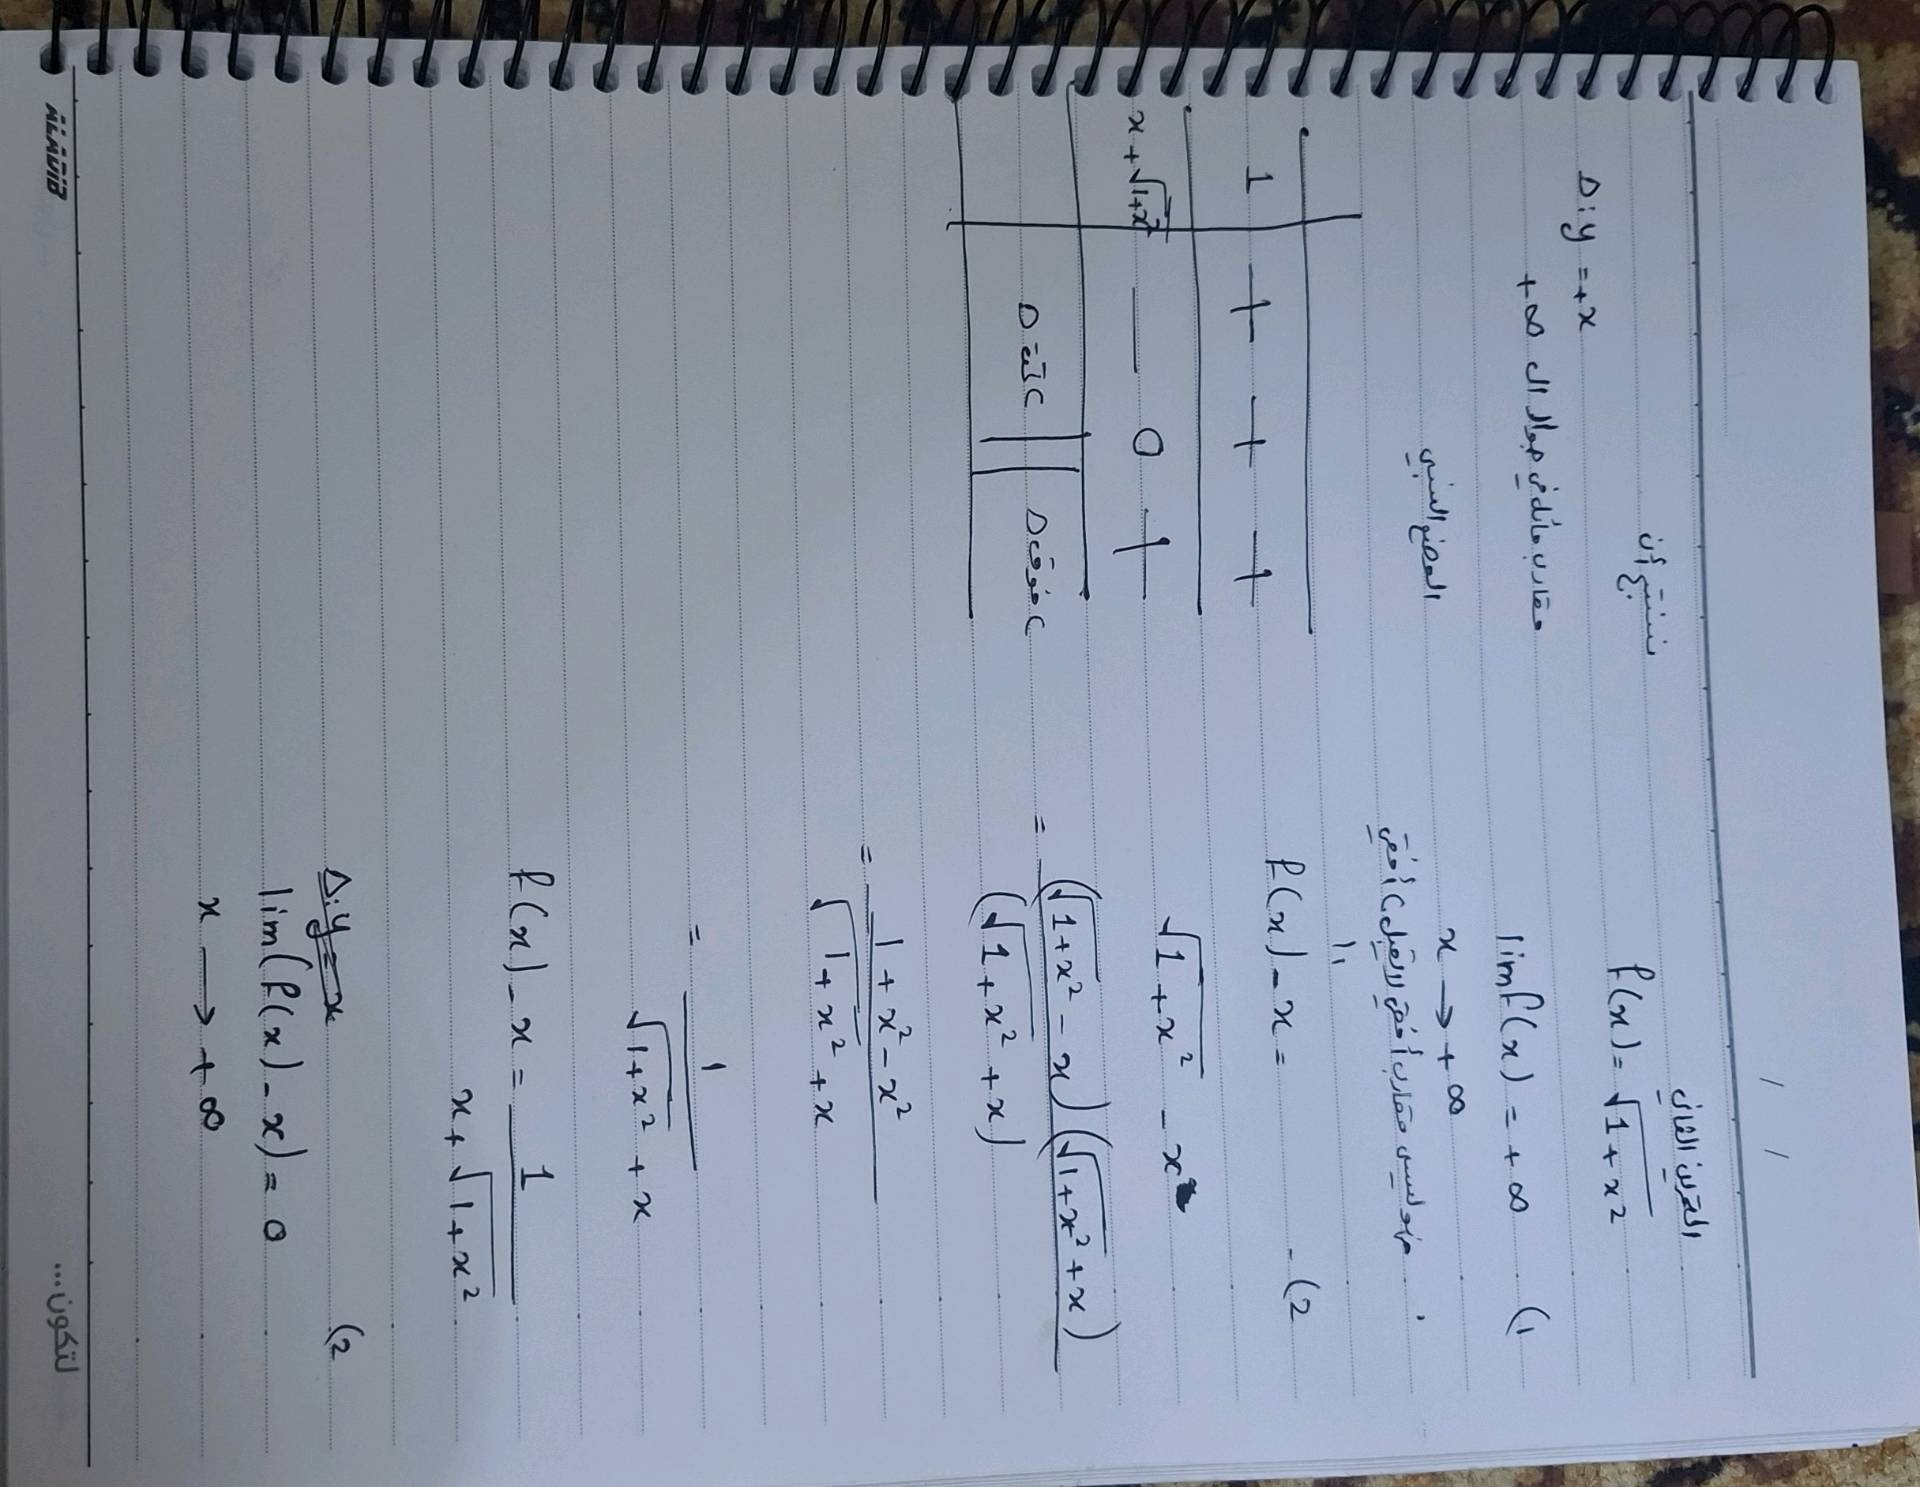 / /
التمرين الثاني
f(x) = √1+x²
lim f(x) = +∞ (1
x → +∞
فهو ليس مقارب أفقي لا يقبل C أفقي
f(x) - x = - (2
√1+x² - x
= (√1+x² - x)(√1+x² + x)
(√1+x² + x)
= 1+x² - x²
√1+x² + x
= 1
√1+x² + x
f(x) - x = 1
x + √1+x²
Δ: y = x (2
lim (f(x) - x) = 0
x → +∞
نستنتج أن
Δ: y = +x
مقارب مائل في جوار ال +∞
الوضع النسبي
1 + + +
x + √1+x² − 0 +
C تحت Δ || C فوق Δ
لتكون...